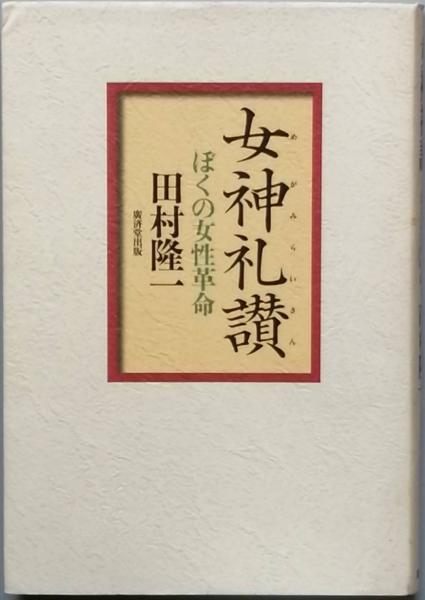 女神礼讃
めがみらいさん
ぼくの女性革命
田村隆一
廣済堂出版